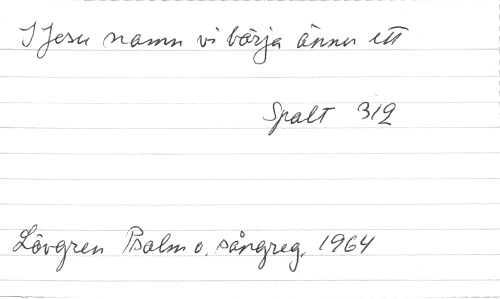 I Jesu namn vi börja ännu ett
Spalt 312
Lövgren Psalm o. sångreg. 1964